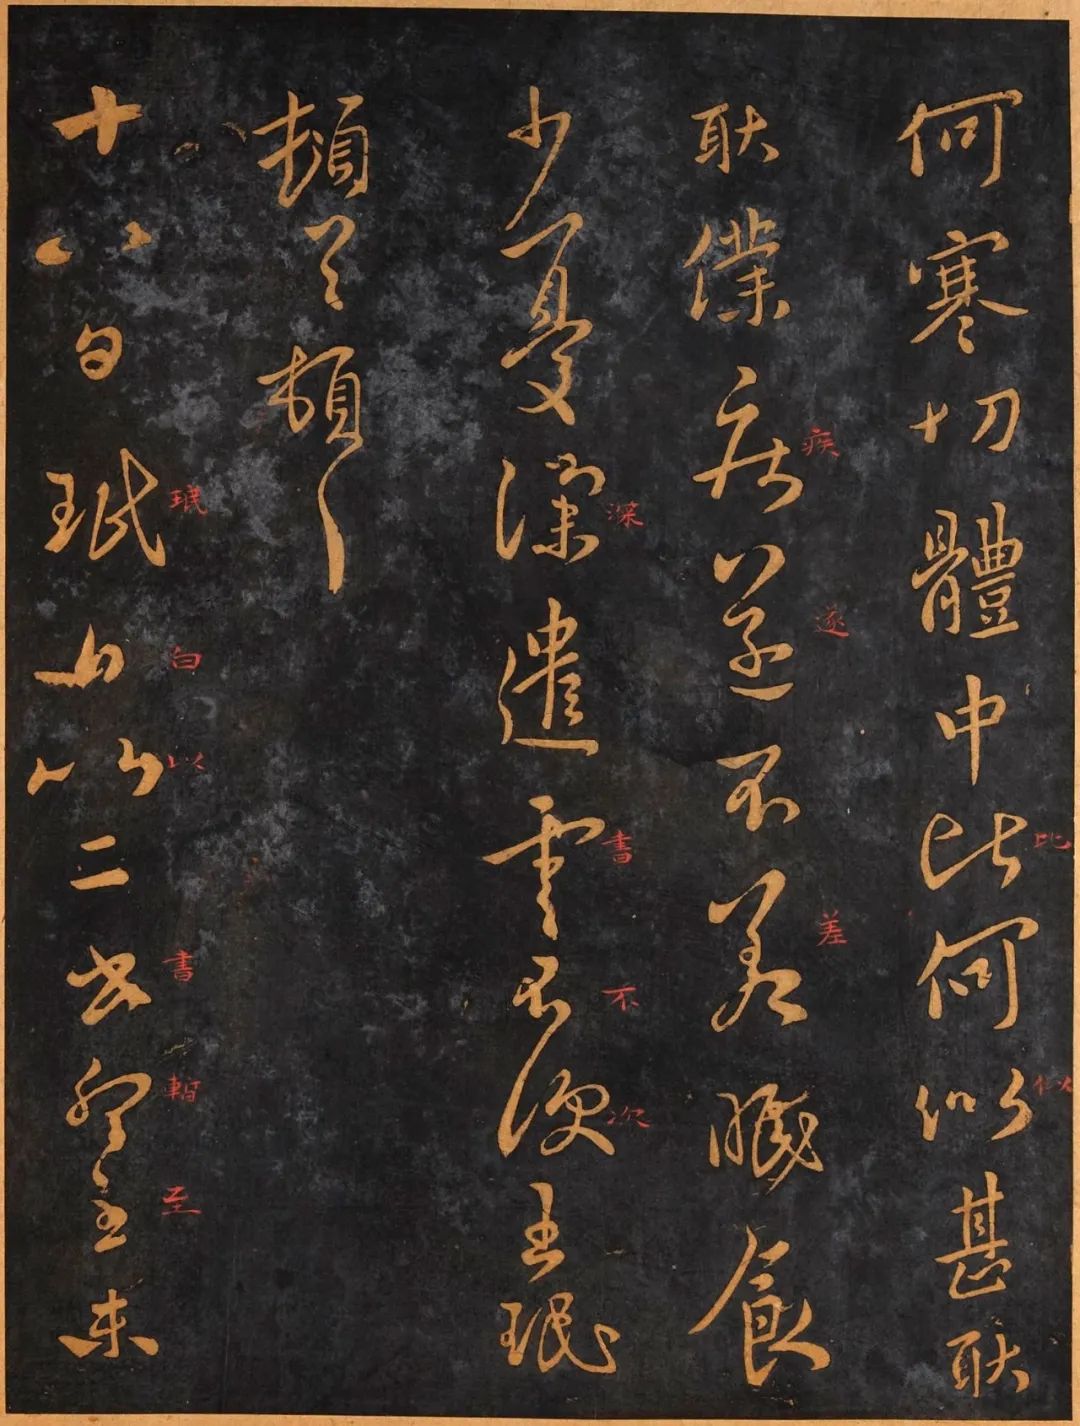 何寒切體中比何似甚耿
比
似
耿僕疾遂不差食
疾
遂
差
少憂深遣書不次王珉
深
書
不
次
頓首頓首
十八日珉白以二書暫至未
珉
白
以
書
暫
至